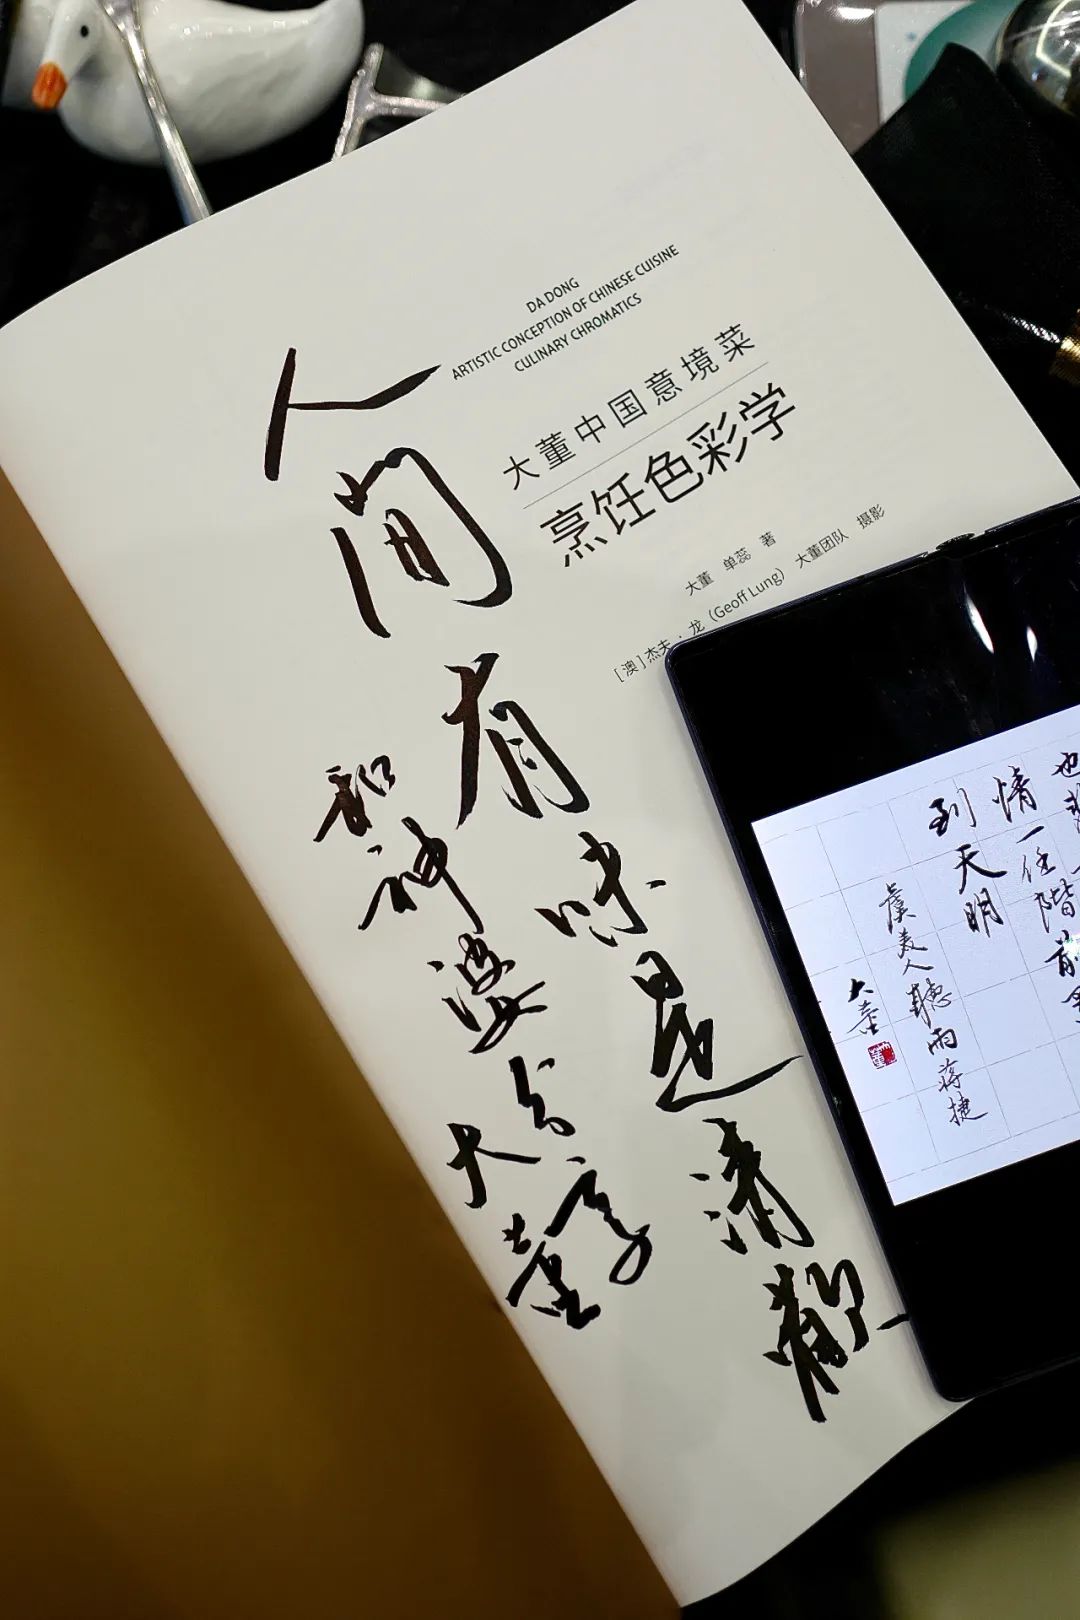 DA DONG
ARTISTIC CONCEPTION OF CHINESE CUISINE
CULINARY CHROMATICS
大董中国意境菜
烹饪色彩学
大董 单蕊 著
[澳]杰夫·龙（Geoff Lung） 大董团队 摄影
人间有味是清歡
和神婆分享
大董
也
情一任階前
到天明
虞美人聽雨蒋捷
大董